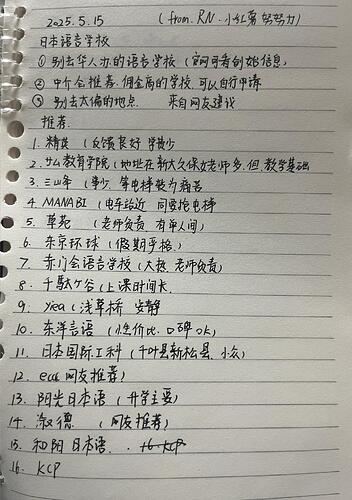 2025.5.15 (from RN. 小红薯 努努力)
日本语言学校
① 别去华人办的语言学校 (官网可看创始信息)
② 中介会推荐 佣金高的学校, 可以自行申请
③ 别去太偏的地点. 来自网友建议
推荐:
1. 精英 (反馈良好 学费少
2. サム教育学院 (地址在新大久保 女老师多. 但 教学基础
3. 三山年 (事少, 等电梯较为痛苦
4. MANABI (电车站近 同要抢电梯
5. 草苑 (老师负责, 有单人间)
6. 东京环球 (假期严格)
7. 赤门会语言学校 (大热, 老师负责)
8. 千駄ヶ谷 (上课时间长.
9. Yiea (浅草桥 安静
10. 东洋言語 (性价比. 口碑OK)
11. 日本国际工科 (千叶县新松县. 小众)
12. ecc 网友推荐)
13. 阳光日本语 (升学主要)
14. 淑德 (网友推荐)
15. 和阳 日本语. . 16. KCP
16. KCP